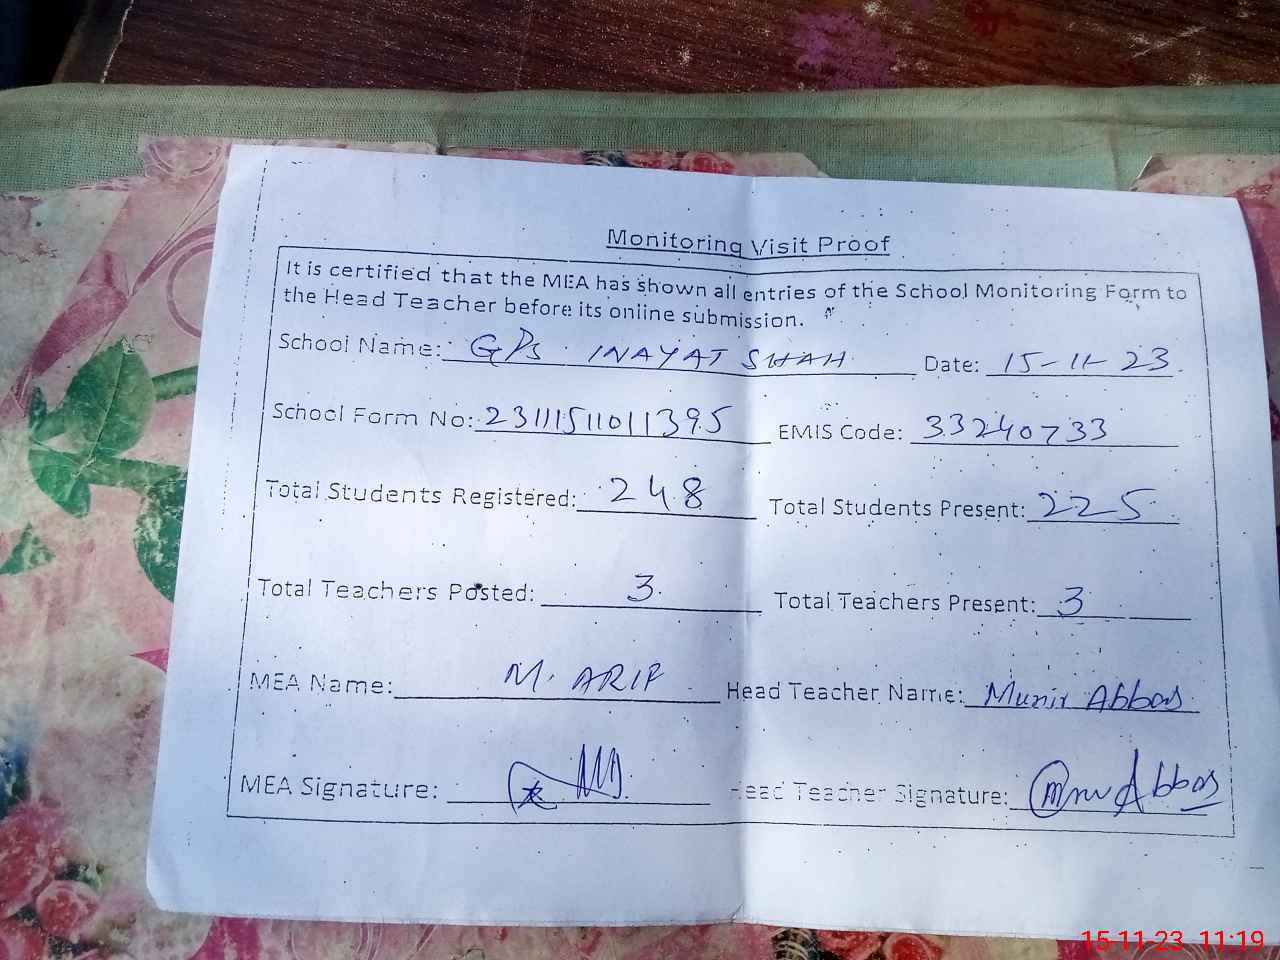 Monitoring Visit Proof
It is certified that the MEA has shown all entries of the School Monitoring Form to
the Head Teacher before its online submission.
School Name: GPS INAYAT SHAH Date: 15-11-23
School Form No: 23111511011395 EMIS Code: 33240733
Total Students Registered: 248 Total Students Present: 225
Total Teachers Posted: 3 Total Teachers Present: 3
MEA Name: M. ARIF Head Teacher Name: Munir Abbas
MEA Signature: Head Teacher Signature: Abbas
15-11-23 11:19